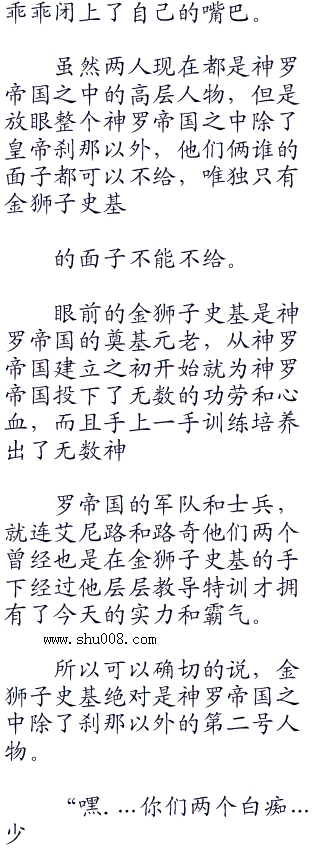 乖乖闭上了自己的嘴巴。
虽然两人现在都是神罗
帝国之中的高层人物，但是
放眼整个神罗帝国之中除了
皇帝刹那以外，他们俩谁的
面子都可以不给，唯独只有
金狮子史基
的面子不能不给。
眼前的金狮子史基是神
罗帝国的奠基元老，从神罗
帝国建立之初开始就为神罗
帝国投下了无数的功劳和心
血，而且手上一手训练培养
出了无数神
罗帝国的军队和士兵，
就连艾尼路和路奇他们两个
曾经也是在金狮子史基的手
下经过他层层教导特训才拥
有了今天的实力和霸气。
www.shu008.com
所以可以确切的说，金
狮子史基绝对是神罗帝国之
中除了刹那以外的第二号人
物。
“嘿....你们两个白痴...
少